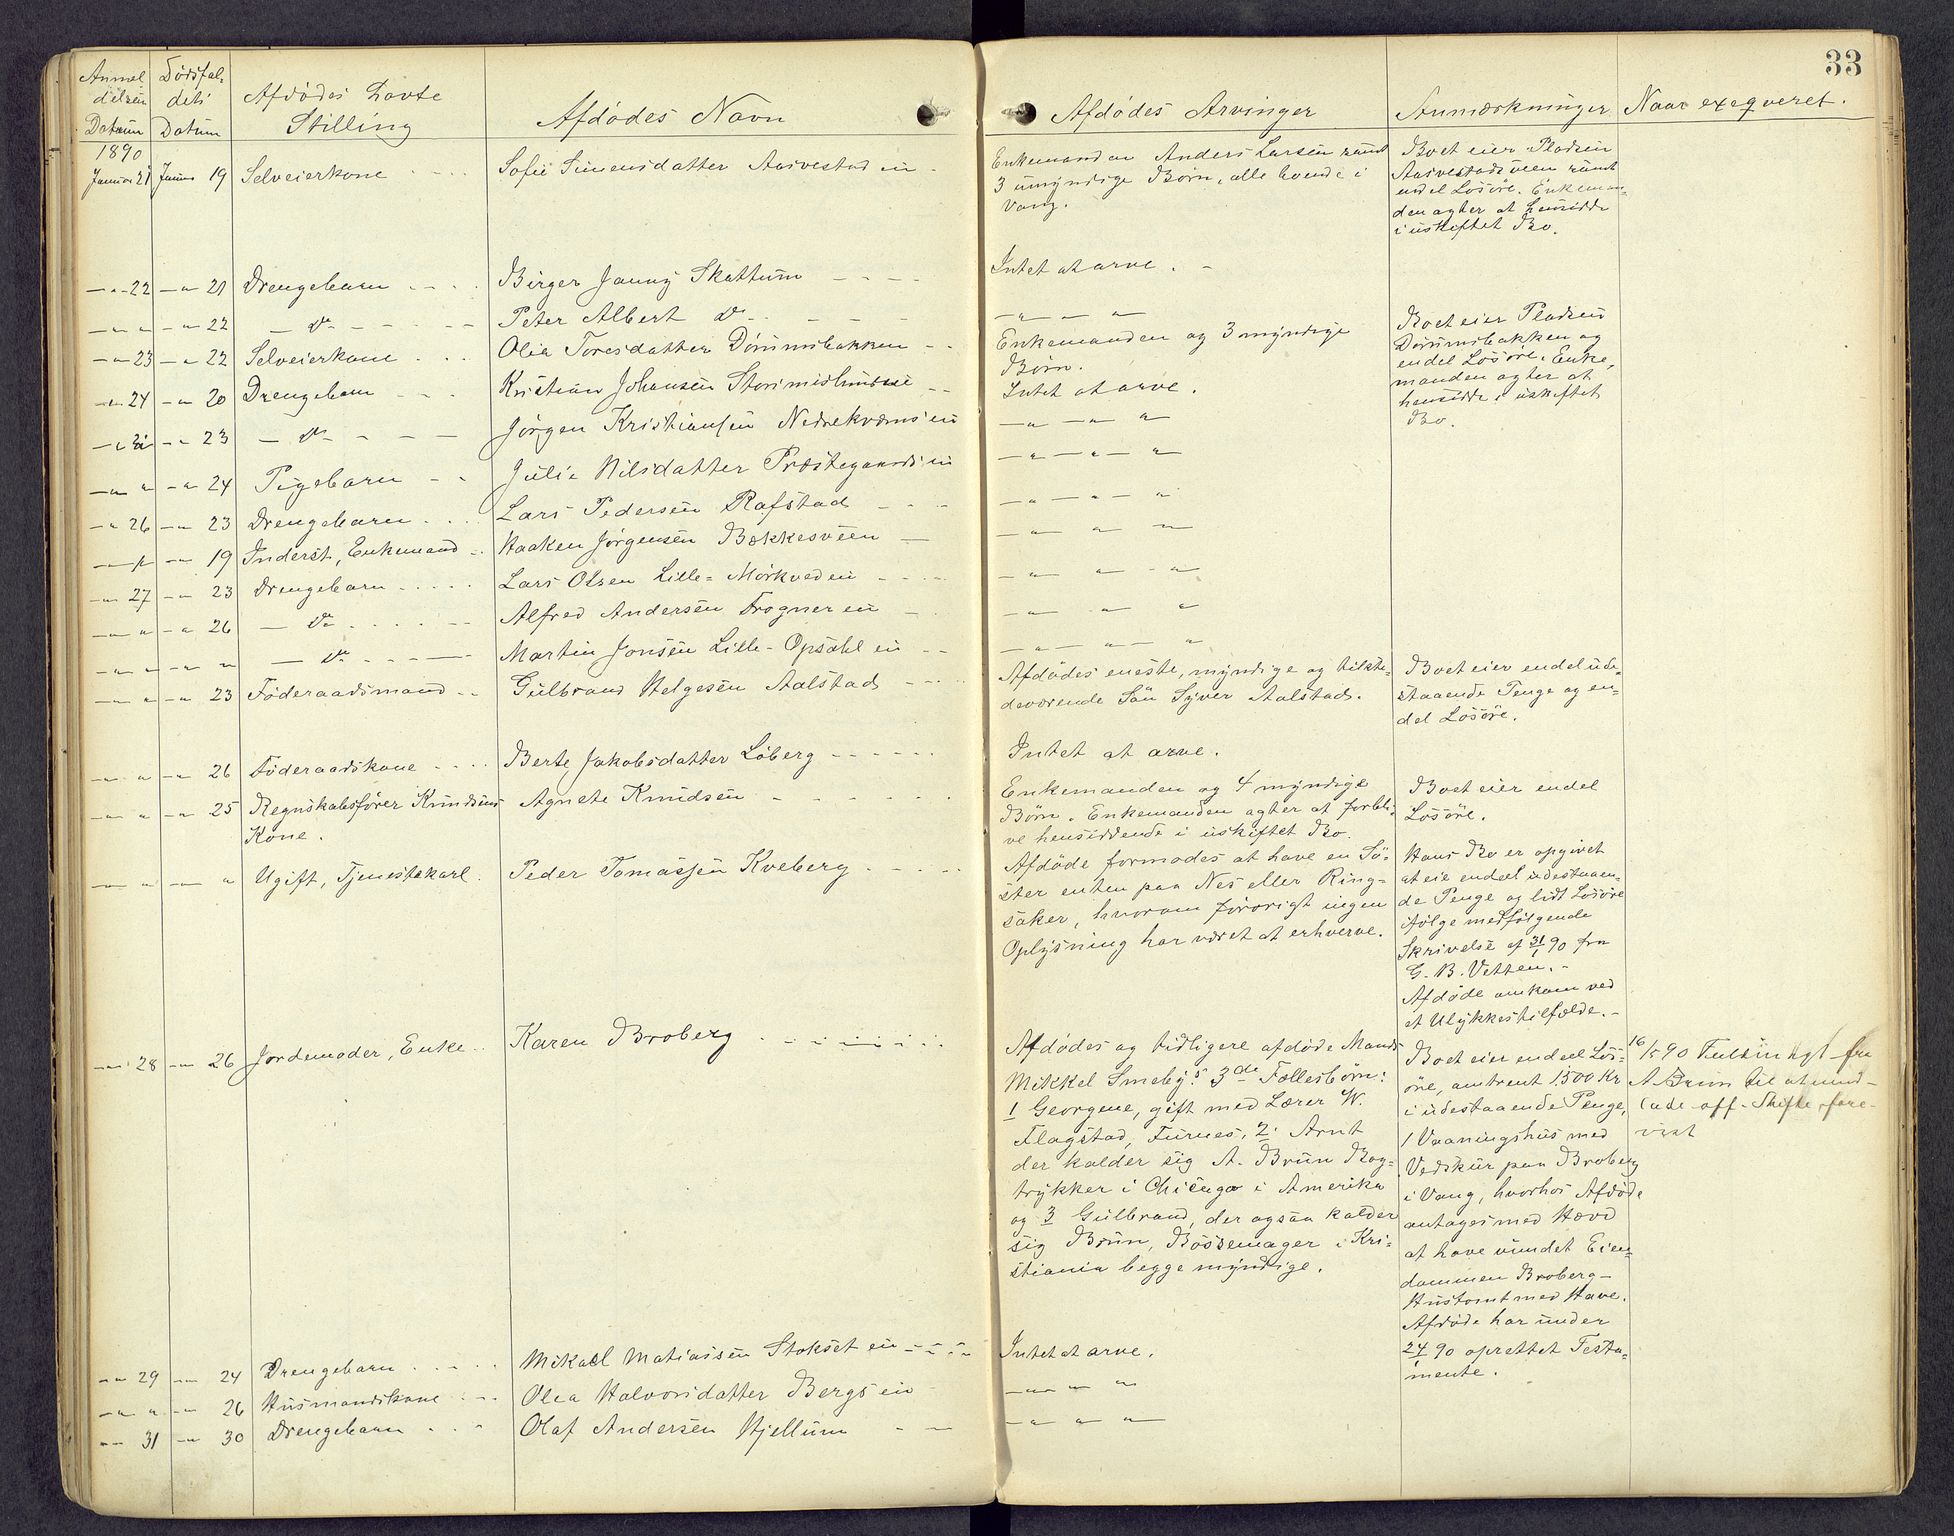 33
Anmel
delsen
Datum
Dødsfal-
dets
Datum
Afdødes Livs
Stilling
Afdødes Navn
Afdødes Arvinger
Anmærkninger
Naar exeqveret.
1890
Januar 21 Januar 19 Selveierkone - - - Sofie Simensdatter Aasvestad ei -
Enkemanden Anders Larsen samt
3 umyndige Børn, alle boende i
Vang.
Boet eier Pladsen
Aasvestadsveen samt
endel Løsøre. Enkeman-
den agter at hensidde
i uskiftet Bo.
-"- 22 -"- 21 Drengebarn - - - Birger Janny Skattum - - - -
Intet at arve. -
-"- " -"- 22 - do - - - - Peter Albert do - - - -
-"- " - "
-"- 23 -"- 22 Selveierkone - - - Olia Toresdatter Dømmibakken - -
Enkemanden og 3 myndige
Børn.
Boet eier Pladsen
Dømmibakken og
endel Løsøre. Enke-
manden agter at
hensidde i uskiftet
Bo.
-"- 24 -"- 20 Drengebarn - - - Kristian Johansen Stormishaugen - -
Intet at arve.
-"- -"- 23 - do - - - - Jørgen Kristiansen Nedrekværnsei
-"- " "
-"- " -"- 24 Pigebarn - - Julie Nilsdatter Præstegaardsei
-"- " - "
-"- 26 -"- 23 Drengebarn - - - Lars Pedersen Rafstad - - -
-"- " - "
-"- " -"- 19 Inderst, Enkemand - - Haaken Jørgensen Bækkesveen -
-"- " "
-"- 27 -"- 23 Drengebarn - - - - Lars Olsen Lille-Mørkvedei - - - -
-"- " - "
-"- " -"- 26 - do - - - - Alfred Andersen Frognerei -
-"- " "
-"- " -"- " - do - - - - Martin Jonsen Lille-Opsahlei - -
-"- " "
-"- " -"- 23 Föderaadsmand - - Gulbrand Helgesen Aalstad - - -
Afdødes eneste, myndige og tilste-
deværende Sön Syver Aalstad.
Boet eier endel ude-
staaende Penge og en-
del Løsøre.
-"- " -"- 26 Föderaadskone - - - Berte Jakobsdatter Løberg - - - - -
Intet at arve.
-"- " -"- 25 Regnskabsfører Knudsens
Kone.
Agnete Knudsen - - - - - -
Enkemanden og 4 myndige
Børn. Enkemanden agter at forbli-
ve hensiddende i uskiftet Bo.
Boet eier endel
Løsøre.
-"- " -"- " Ugift, Tjenestekarl. Peder Tomassen Kveberg - - - -
Afdøde formodes at have en Sö-
ster enten paa Nes eller Ring-
saker, hvorom forøvrigt ingen
Oplysning har været at erhverve.
Hans Bo er opgivet
at eie endeel udestaaen-
de Penge og lidt Løsøre
ifølge medfølgende
Skrivelse af 31/1 90 fra
G. B. Vetten. -
Afdöde omkom ved
et Ulykkestilfælde. -
-"- 28 -"- 26 Jordemoder, Enke - - Karen Broberg - - - - - -
Afdødes og tidligere afdøde Mands
Mikkel Smeby's 3de Fællesbörn:
1 Georgene, gift med Lærer W.
Flagstad, Furnes, 2. Arnt
der kalder sig A. Brun Bog-
trykker i Chicago i Amerika
og 3 Gulbrand, der ogsaa kalder
sig Brun, Bössemager i Kri-
stiania begge myndige.
Boet eier endeel Løs-
øre, omtrent 1500 Kr
i udestaaende Penge,
1 Vaaningshus med
Vedskur paa Broberg
i Vang, hvorhos Afdöde
antages med Hævd
at have vundet Eien-
dommen Broberg -
Hustomt med Have.
Afdøde har under
24/1 90 oprettet Testa-
mente.
16/5 90 fra
A. Brun til at
off. Skifte fore-
vist
-"- 29 -"- 24 Drengebarn - - - - Mikael Matiassen Stokset ei - - - -
Intet at arve.
-"- " -"- 26 Husmandskone - - - Olea Halvorsdatter Bergsei
-"- " "
-"- 31 -"- 30 Drengebarn - - - Olaf Andersen Hjellum - -
-"- " "